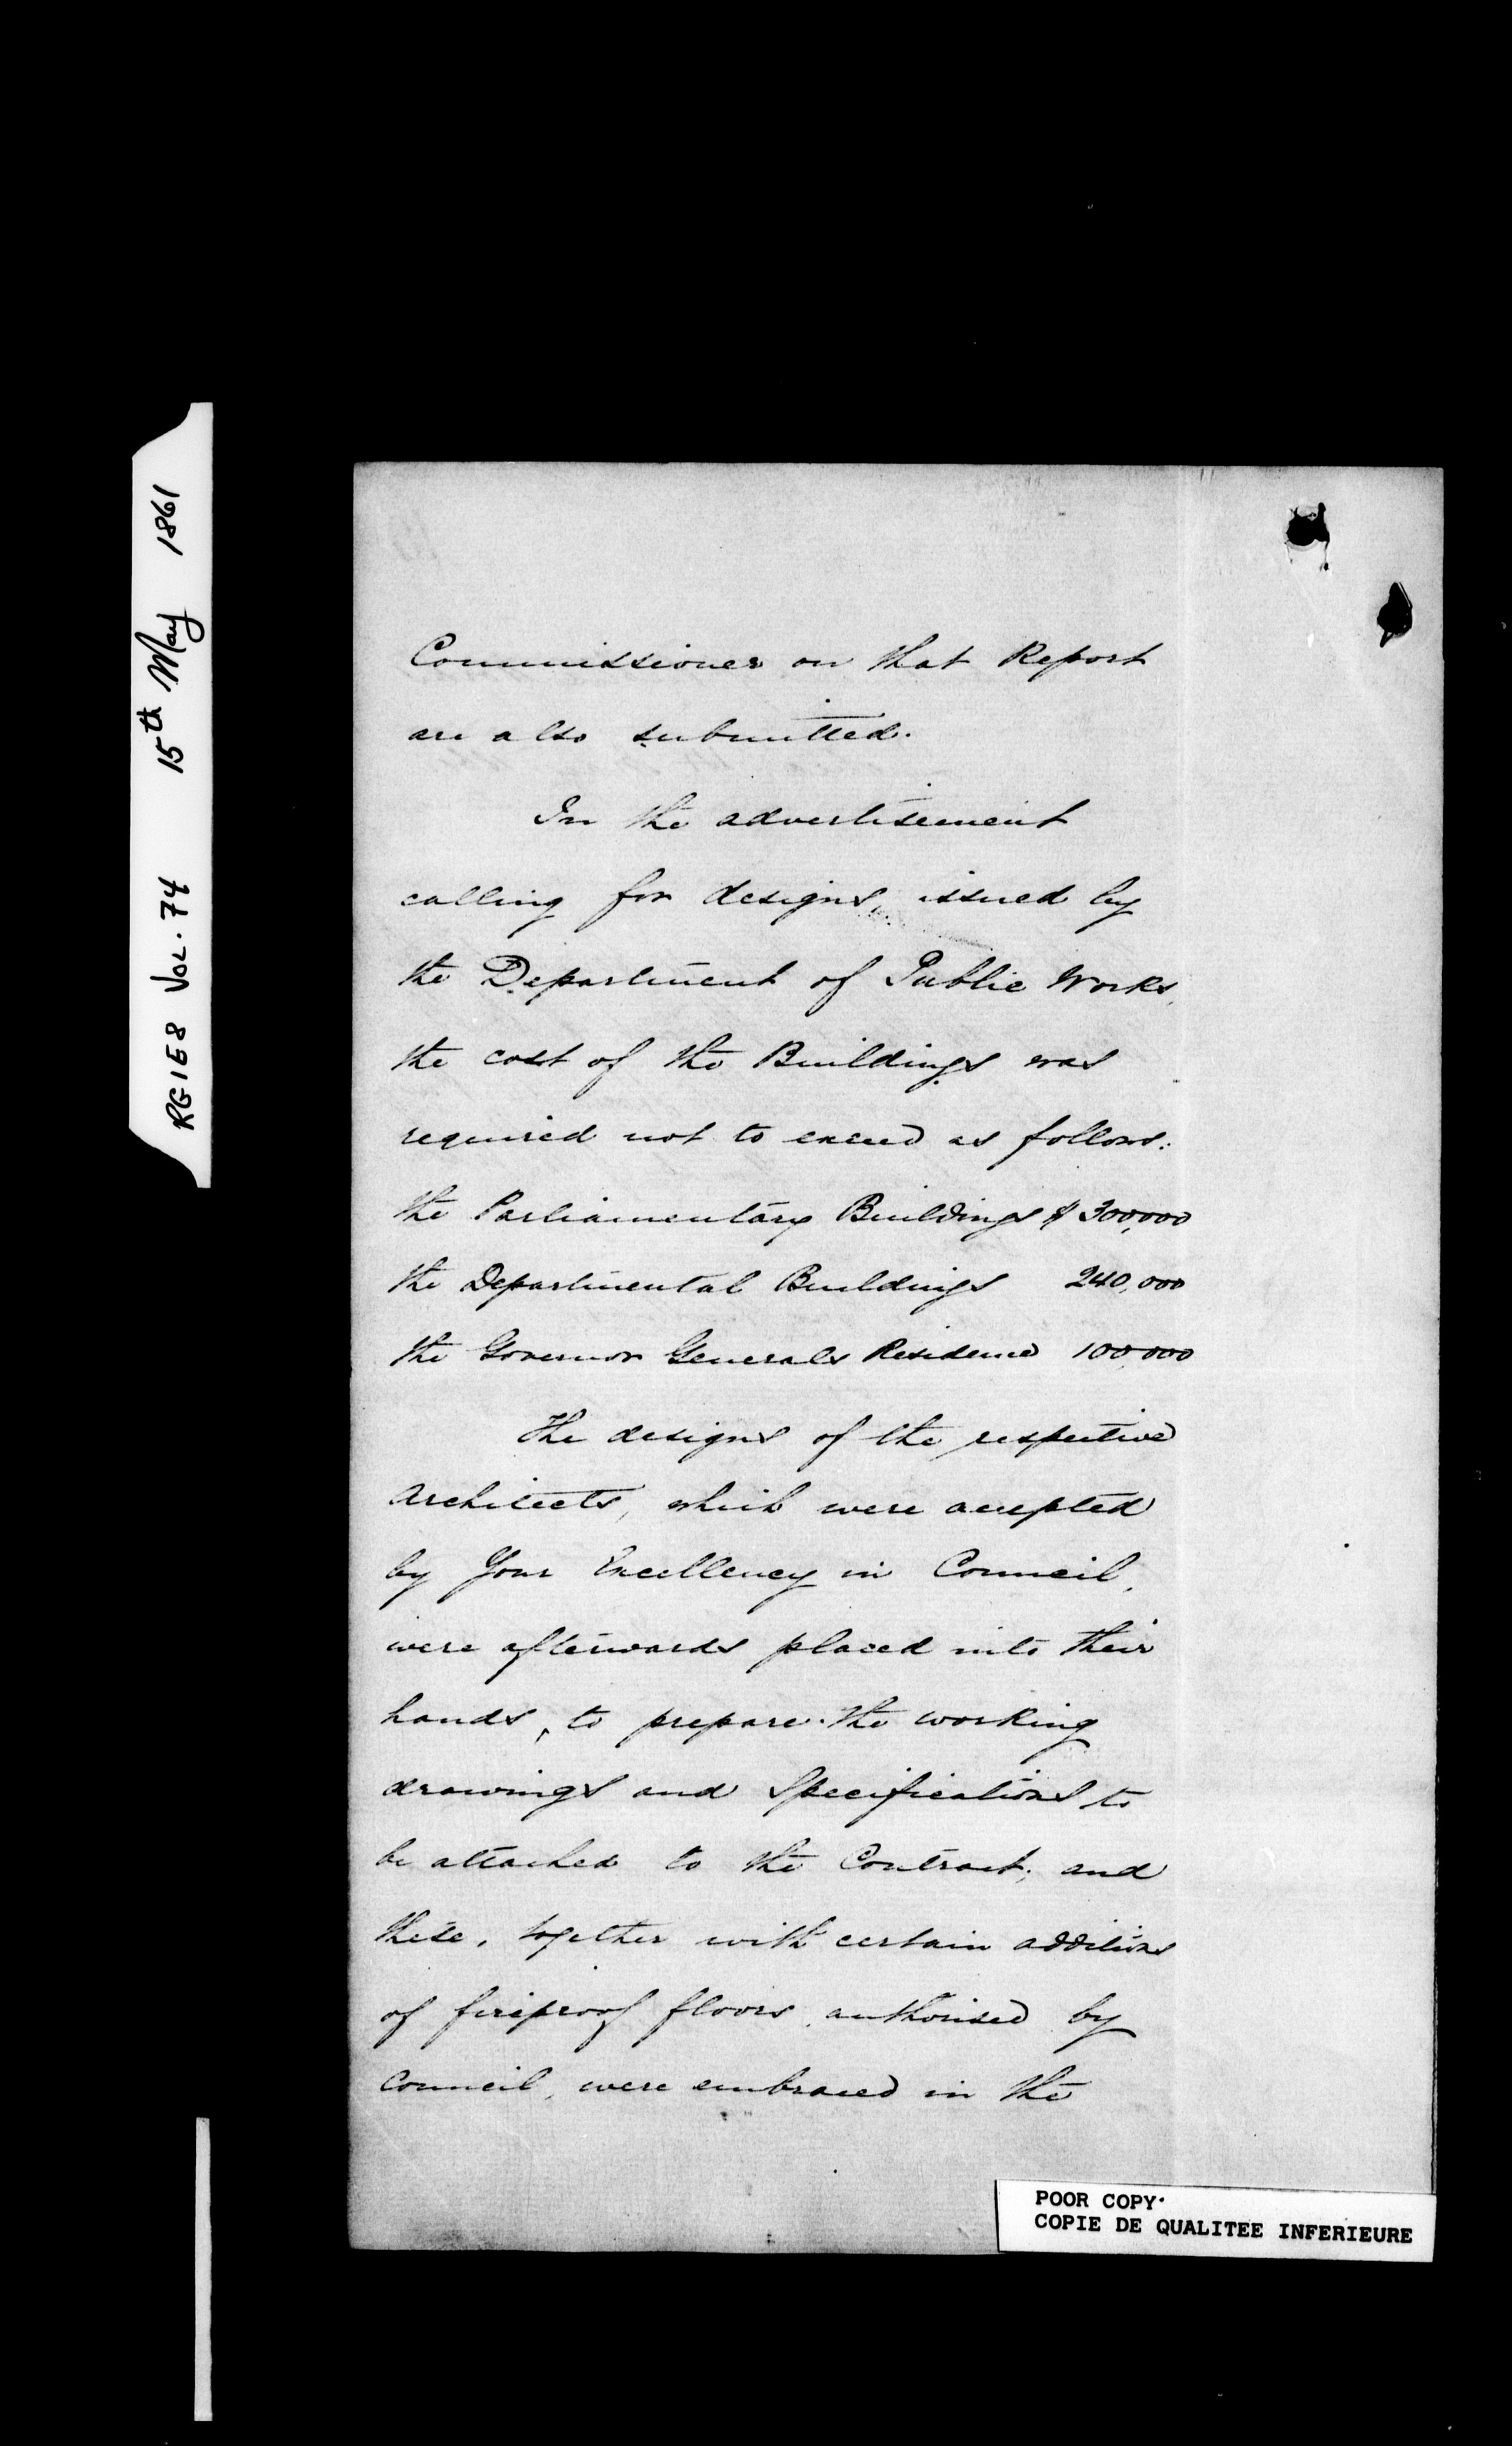 RG1E8 VOL. 74 15th May 1861
Commissioner on that Report
are also submitted.
In the advertisement
calling for designs, issued by
the Department of Public Works,
the cost of the Buildings was
required not to exceed as follows:
the Parliamentary Buildings $ 300,000
the Departmental Buildings 240,000
the Governor Generals Residence 100,000
The designs of the respective
Architects, which were accepted
by Your Excellency in Council,
were afterwards placed into their
hands, to prepare the working
drawings and Specifications to
be attached to the Contract; and
these, together with certain additions
of fireproof floors, authorised by
Council, were embraced in the
POOR COPY
COPIE DE QUALITEE INFERIEURE